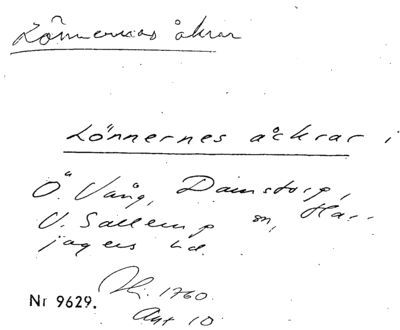 Lönnernas åkrar
Lönnernes åckrar i
Ö. Vång, Damstorp,
V. Sallerup m, Har-
jagers hd.
1760
Nr 9629.
10